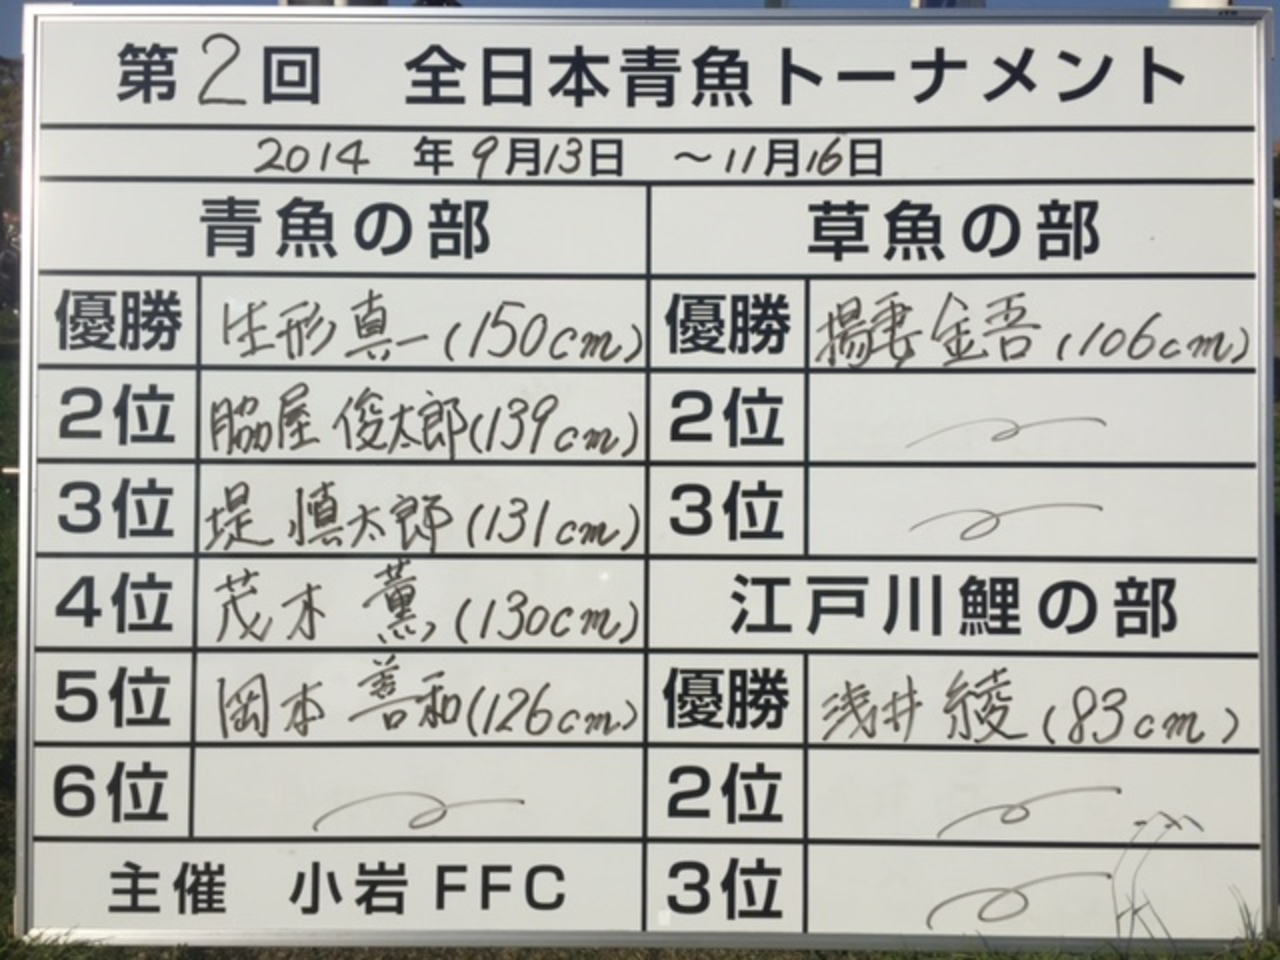 第2回 全日本青魚トーナメント
2014 年9月13日 ～11月16日
青魚の部
優勝 生形真一(150cm)
2位 脇屋 俊太郎(139cm)
3位 堤 慎太郎(131cm)
4位 茂木 薫(130cm)
5位 岡本 善和(126cm)
6位
主催 小岩FFC
草魚の部
優勝 揚妻 金吾(106cm)
2位
3位
江戸川鯉の部
優勝 浅井 綾(83cm)
2位
3位